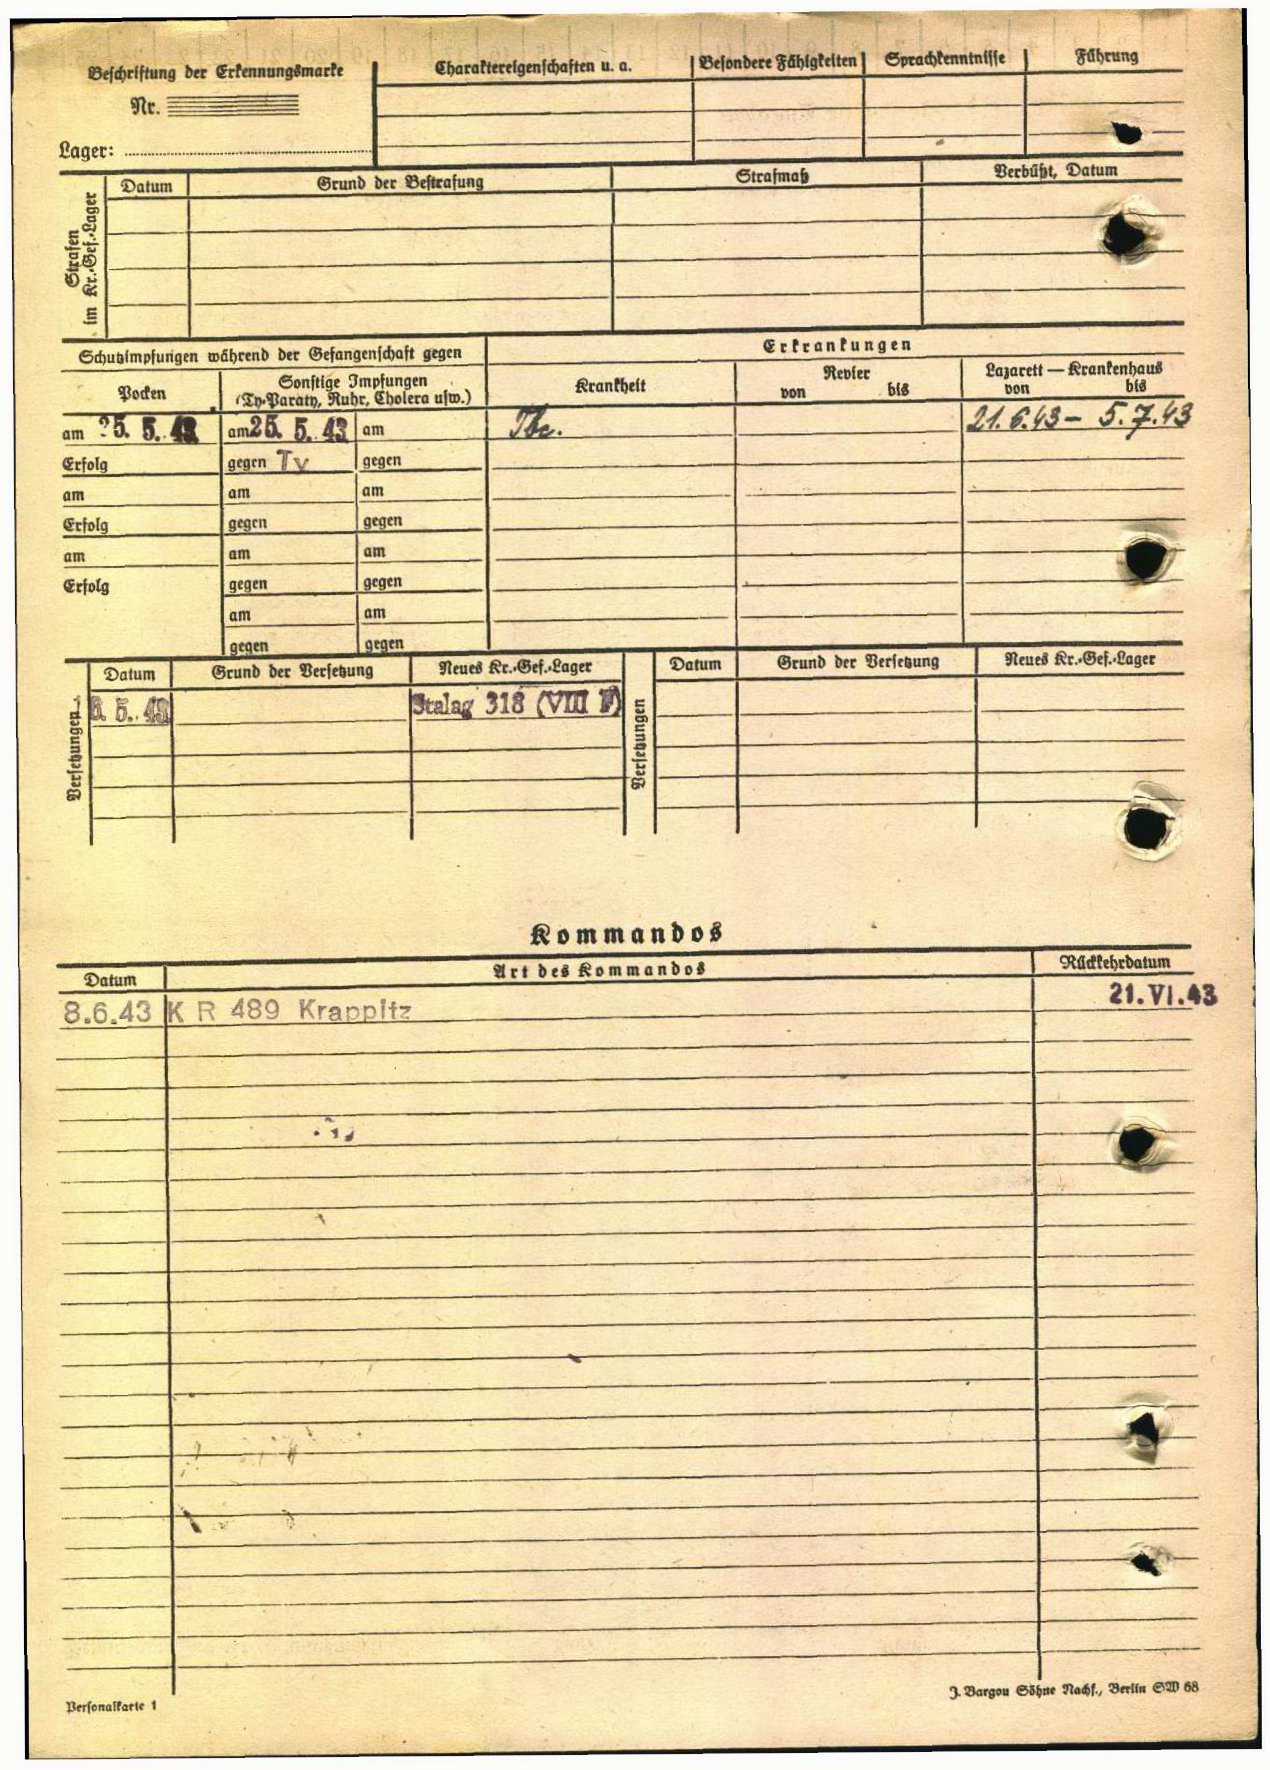 Beschriftung der Erkennungsmarke
Nr.
Lager:
Charaktereigenschaften u. a.
Besondere Fähigkeiten
Sprachkenntnisse
Führung
Strafen
im Kr.-Gef.-Lager
Datum
Grund der Bestrafung
Strafmaß
Verbüßt, Datum
Schutzimpfungen während der Gefangenschaft gegen
Erkrankungen
Pocken
Sonstige Impfungen
(Ty-Paraty, Ruhr, Cholera usw.)
Krankheit
Revier
von bis
Lazarett — Krankenhaus
von bis
am 25. 5. 43 am 25. 5. 43 am Tbc. 21.6.43 – 5.7.43
Erfolg gegen Ty gegen
am am am
Erfolg gegen gegen
am am am
Erfolg gegen gegen
am am
gegen gegen
Versetzungen
Datum Grund der Versetzung Neues Kr.-Gef.-Lager
5. 43 Stalag 318 (VIII F)
Versetzungen
Datum Grund der Versetzung Neues Kr.-Gef.-Lager
Kommandos
Datum Art des Kommandos Rückkehrdatum
8.6.43 K R 489 Krappitz 21.VI.43
Personalkarte 1
J. Bargou Söhne Nachf., Berlin SW 68